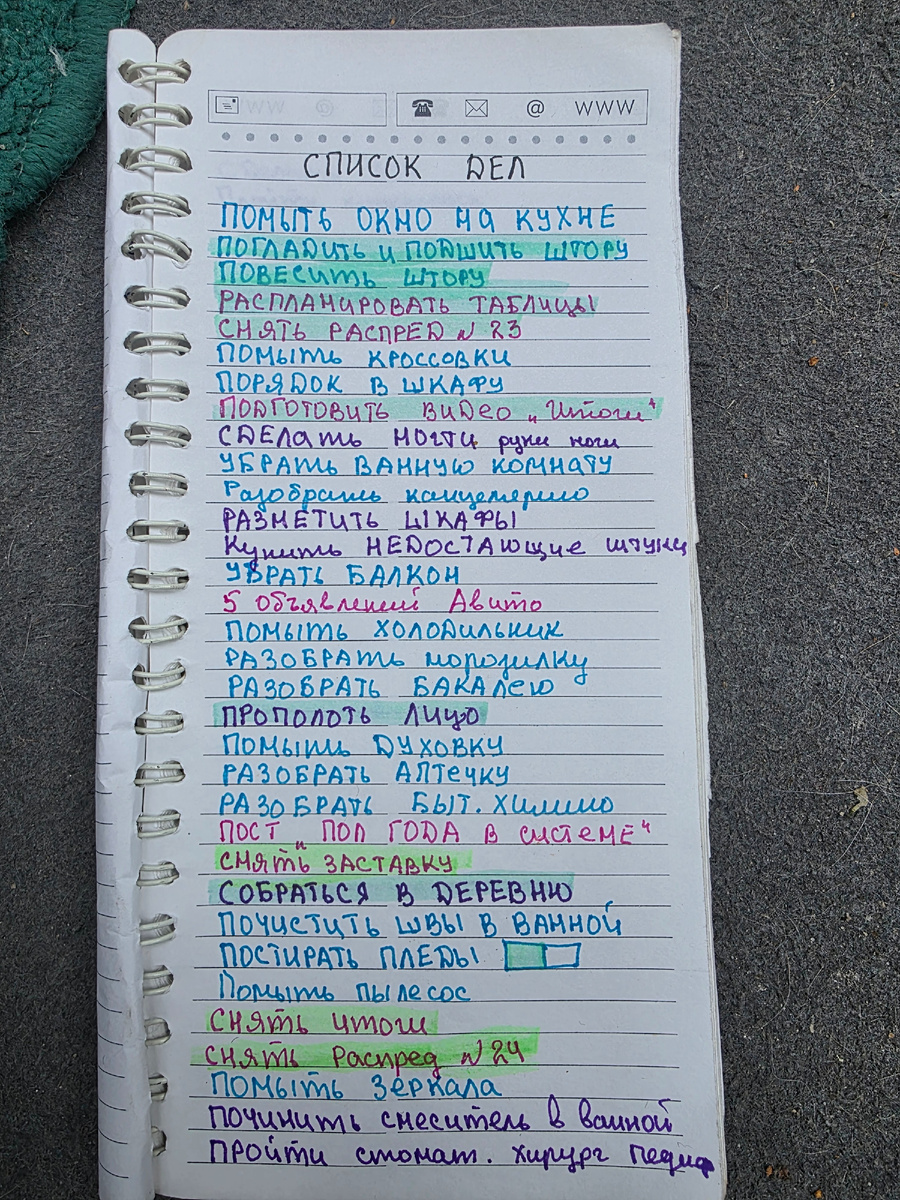 @ WWW
СПИСОК ДЕЛ
ПОМЫТЬ ОКНО НА КУХНЕ
ПОГЛАДИТЬ и ПОДШИТЬ ШТОРУ
ПОВЕСИТЬ ШТОРУ
РАСПЛАНИРОВАТЬ ТАБЛИЦЫ
СНЯТЬ РАСПРЕД N 23
ПОМЫТЬ КРОССОВКИ
ПОРЯДОК В ШКАФУ
ПОДГОТОВИТЬ ВИДЕО „Итоги“
СДЕЛАТЬ НОГТИ руки ноги
УБРАТЬ ВАННУЮ КОМНАТУ
Разобрать канцелярию
РАЗМЕТИТЬ ШКАФЫ
Купить НЕДОСТАЮЩИЕ штуки
УБРАТЬ БАЛКОН
5 Объявлений Авито
ПОМЫТЬ ХОЛОДИЛЬНИК
РАЗОБРАТЬ морозилку
РАЗОБРАТЬ БАКАЛЕЮ
ПРОПОЛОТЬ ЛИЦО
ПОМЫТЬ ДУХОВКУ
РАЗОБРАТЬ АПТЕЧКУ
РАЗОБРАТЬ БЫТ. ХИМИЮ
ПОСТ „ПОЛ ГОДА В СИСТЕМЕ“
СНЯТЬ ЗАСТАВКУ
СОБРАТЬСЯ В ДЕРЕВНЮ
ПОЧИСТИТЬ ШВЫ В ВАННОЙ
ПОСТИРАТЬ ПЛЕДЫ
Помыть пылесос
СНЯТЬ ИТОГИ
СНЯТЬ Распред N 24
ПОМЫТЬ Зеркала
ПОЧИНИТЬ смеситель в ванной
ПРОЙТИ стомат. хирург